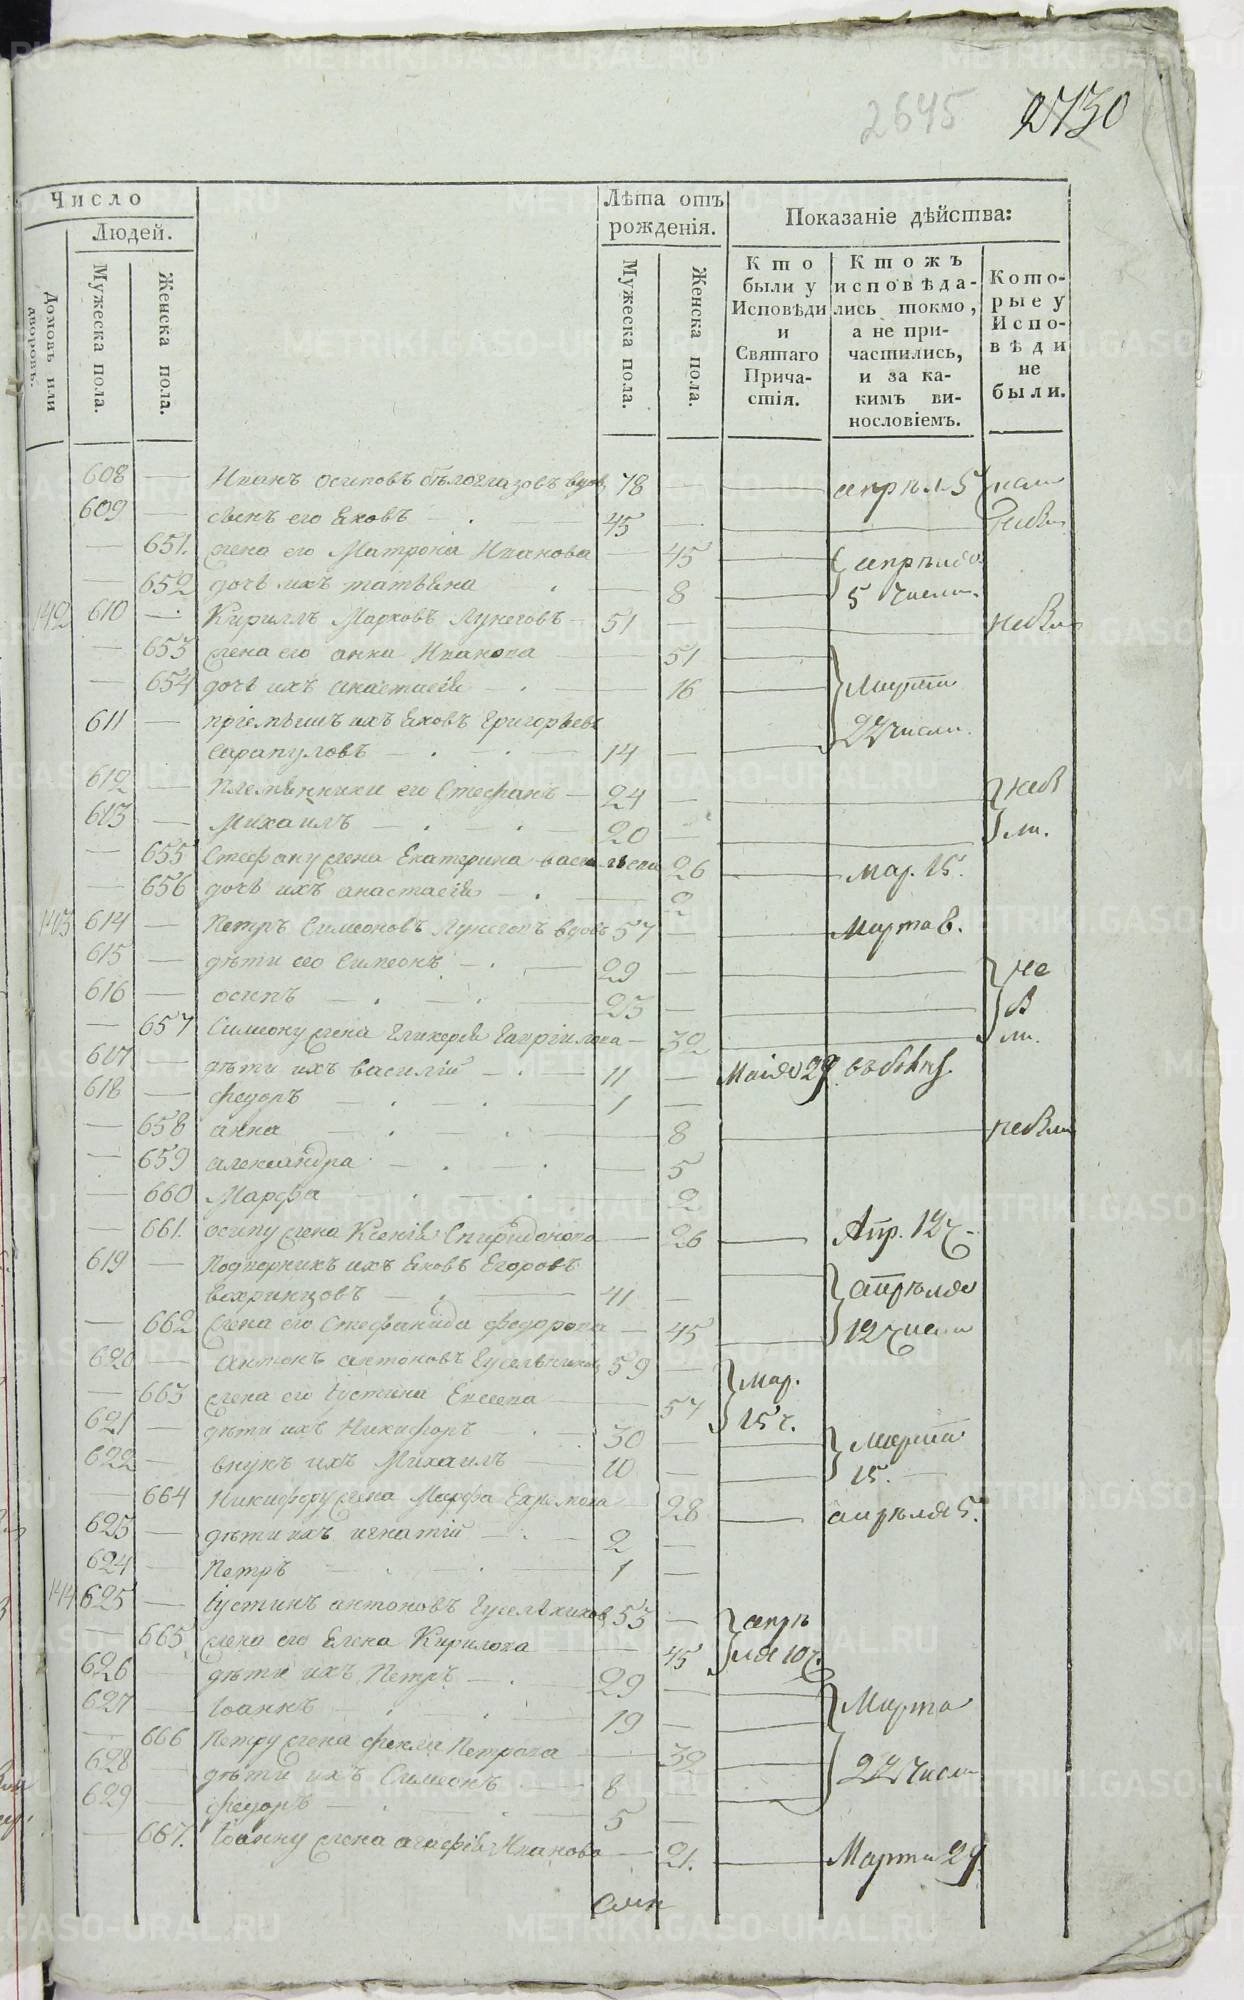 2645 2730
Число
Людей.
Домовъ или дворовъ.
Мужеска пола.
Женска пола.
Лѣта отъ рожденія.
Мужеска пола.
Женска пола.
Показаніе дѣйства:
Кто были у Исповѣди и Святаго Причастія.
Ктожъ исповѣдались токмо, а не причастились, и за какимъ винословіемъ.
Которые у Исповѣди не были.
608 — Иванъ осиповъ бѣлоглазовъ вдов 78 — апрѣл 5 числ
609 — сынъ его Яковъ 45 — небы
— 651. жена его Матрона Иванова — 45 апрѣля
— 652 дочь ихъ татьяна — 8 5 числа.
610 — Кириллъ Марковъ Лунеговъ 51 —
— 653 жена его анна Иванова — 51
— 654 дочь ихъ анастасія — 16 Марта
611 — пріемышъ ихъ Яковъ Григорьевъ
Сарапуловъ — 14 — 22 числа.
612 — Племянники его Стефанъ — 24 — неб
613 — Михаилъ — 20 — ли.
— 655 Стефану жена Екатерина васильева 26 Мар. 15.
— 656 дочь ихъ анастасія — 2
614 — Петръ Симеоновъ Лунеговъ вдовъ 57 — Марта 8.
615 — дѣти его Симеонъ — 29 — не
616 — осипъ — 25 — б
— 657 Симеону жена Гликерія — 32 ли.
617 — дѣти ихъ василій — 11 — Маія 29
618 — федоръ — 1 —
— 658 анна — 8
— 659 александра — 5
— 660 Марфа — 2
— 661. осипу жена Ксенія Спиридонова — 26 Апр. 12 ч
619 — Подворникъ ихъ Яковъ Егоровъ
Вохринцовъ — 41 — апрѣля
— 662 жена его Стефанида федорова — 45 12 числа
620 — антонъ антоновъ Гусельников 59 — Мар.
— 663 жена его Іустина Евсеева — 57 15 ч.
621 — дѣти ихъ Никифоръ — 30 — Марта
622 — внукъ ихъ Михаилъ — 10 — 15.
— 664 Никифору жена Марфа — 28 апрѣля 5.
623 — дѣти ихъ игнатій — 2 —
624 — Петръ — 1 —
625 — Іустинъ антоновъ Гусельников 53 — апрѣ
— 665. жена его Елена Кирилова — 45 ля 10 ч.
626 — дѣти ихъ Петръ — 29 —
627 — Іоаннъ — 19 — Марта
— 666 Петру жена фекла Петрова — 32
628 — дѣти ихъ Симеонъ — 8 — 22 числа
629 — федоръ — 5 —
— 667. Іоанну жена агафія Иванова — 21. Марта 29